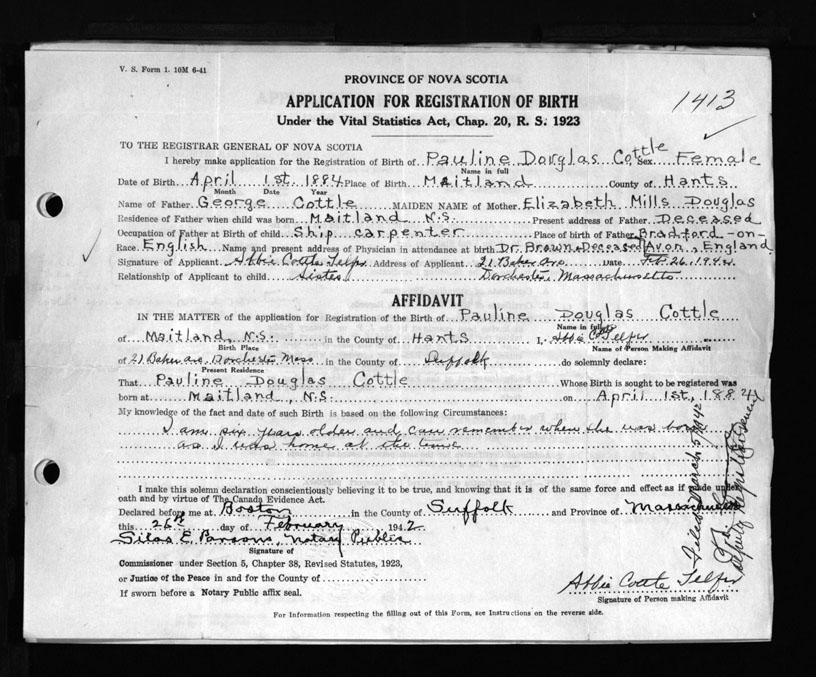 V. S. Form 1. 10M 6-41
PROVINCE OF NOVA SCOTIA
APPLICATION FOR REGISTRATION OF BIRTH
1413
Under the Vital Statistics Act, Chap. 20, R. S. 1923
TO THE REGISTRAR GENERAL OF NOVA SCOTIA
I hereby make application for the Registration of Birth of Pauline Douglas Cottle Sex Female
Name in full
Date of Birth April 1st. 1884 Place of Birth Maitland County of Hants
Month Date Year
Name of Father George Cottle MAIDEN NAME of Mother Elizabeth Mills Douglas
Residence of Father when child was born Maitland N.S. Present address of Father Deceased
Occupation of Father at Birth of child Ship carpenter Place of birth of Father Bradford-on-
Race English Name and present address of Physician in attendance at birth Dr. Brown, Deceased Avon, England
Signature of Applicant Abbie Cottle Telfer Address of Applicant 21 Baker Ave. Date Feb. 26. 1942
Relationship of Applicant to child Sister Dorchester, Massachusetts
AFFIDAVIT
IN THE MATTER of the application for Registration of the Birth of Pauline Douglas Cottle
Name in full
of Maitland, N.S. in the County of Hants I, Abbie Telfer
Birth Place Name of Person Making Affidavit
of 21 Baker Ave. Dorchester Mass in the County of Suffolk do solemnly declare:
Present Residence
That Pauline Douglas Cottle Whose Birth is sought to be registered was
born at Maitland, N.S. on April 1st, 1884
My knowledge of the fact and date of such Birth is based on the following Circumstances:
I am six years older and can remember when she was born
as I was home at the time
I make this solemn declaration conscientiously believing it to be true, and knowing that it is of the same force and effect as if made under
oath and by virtue of The Canada Evidence Act.
Declared before me at Boston in the County of Suffolk and Province of Massachusetts
this 26th day of February 1942
Silas E. Parsons, Notary Public
Signature of
Commissioner under Section 5, Chapter 38, Revised Statutes, 1923,
or Justice of the Peace in and for the County of
Abbie Cottle Telfer
If sworn before a Notary Public affix seal.
Signature of Person making Affidavit
For Information respecting the filling out of this Form, see Instructions on the reverse side.
Filed March 5/1942
Deputy Registrar General